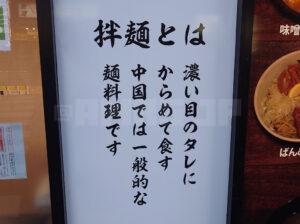 拌麺とは
濃い目のタレに
からめて食す
中国では一般的な
麺料理です
味噌
ばんめ